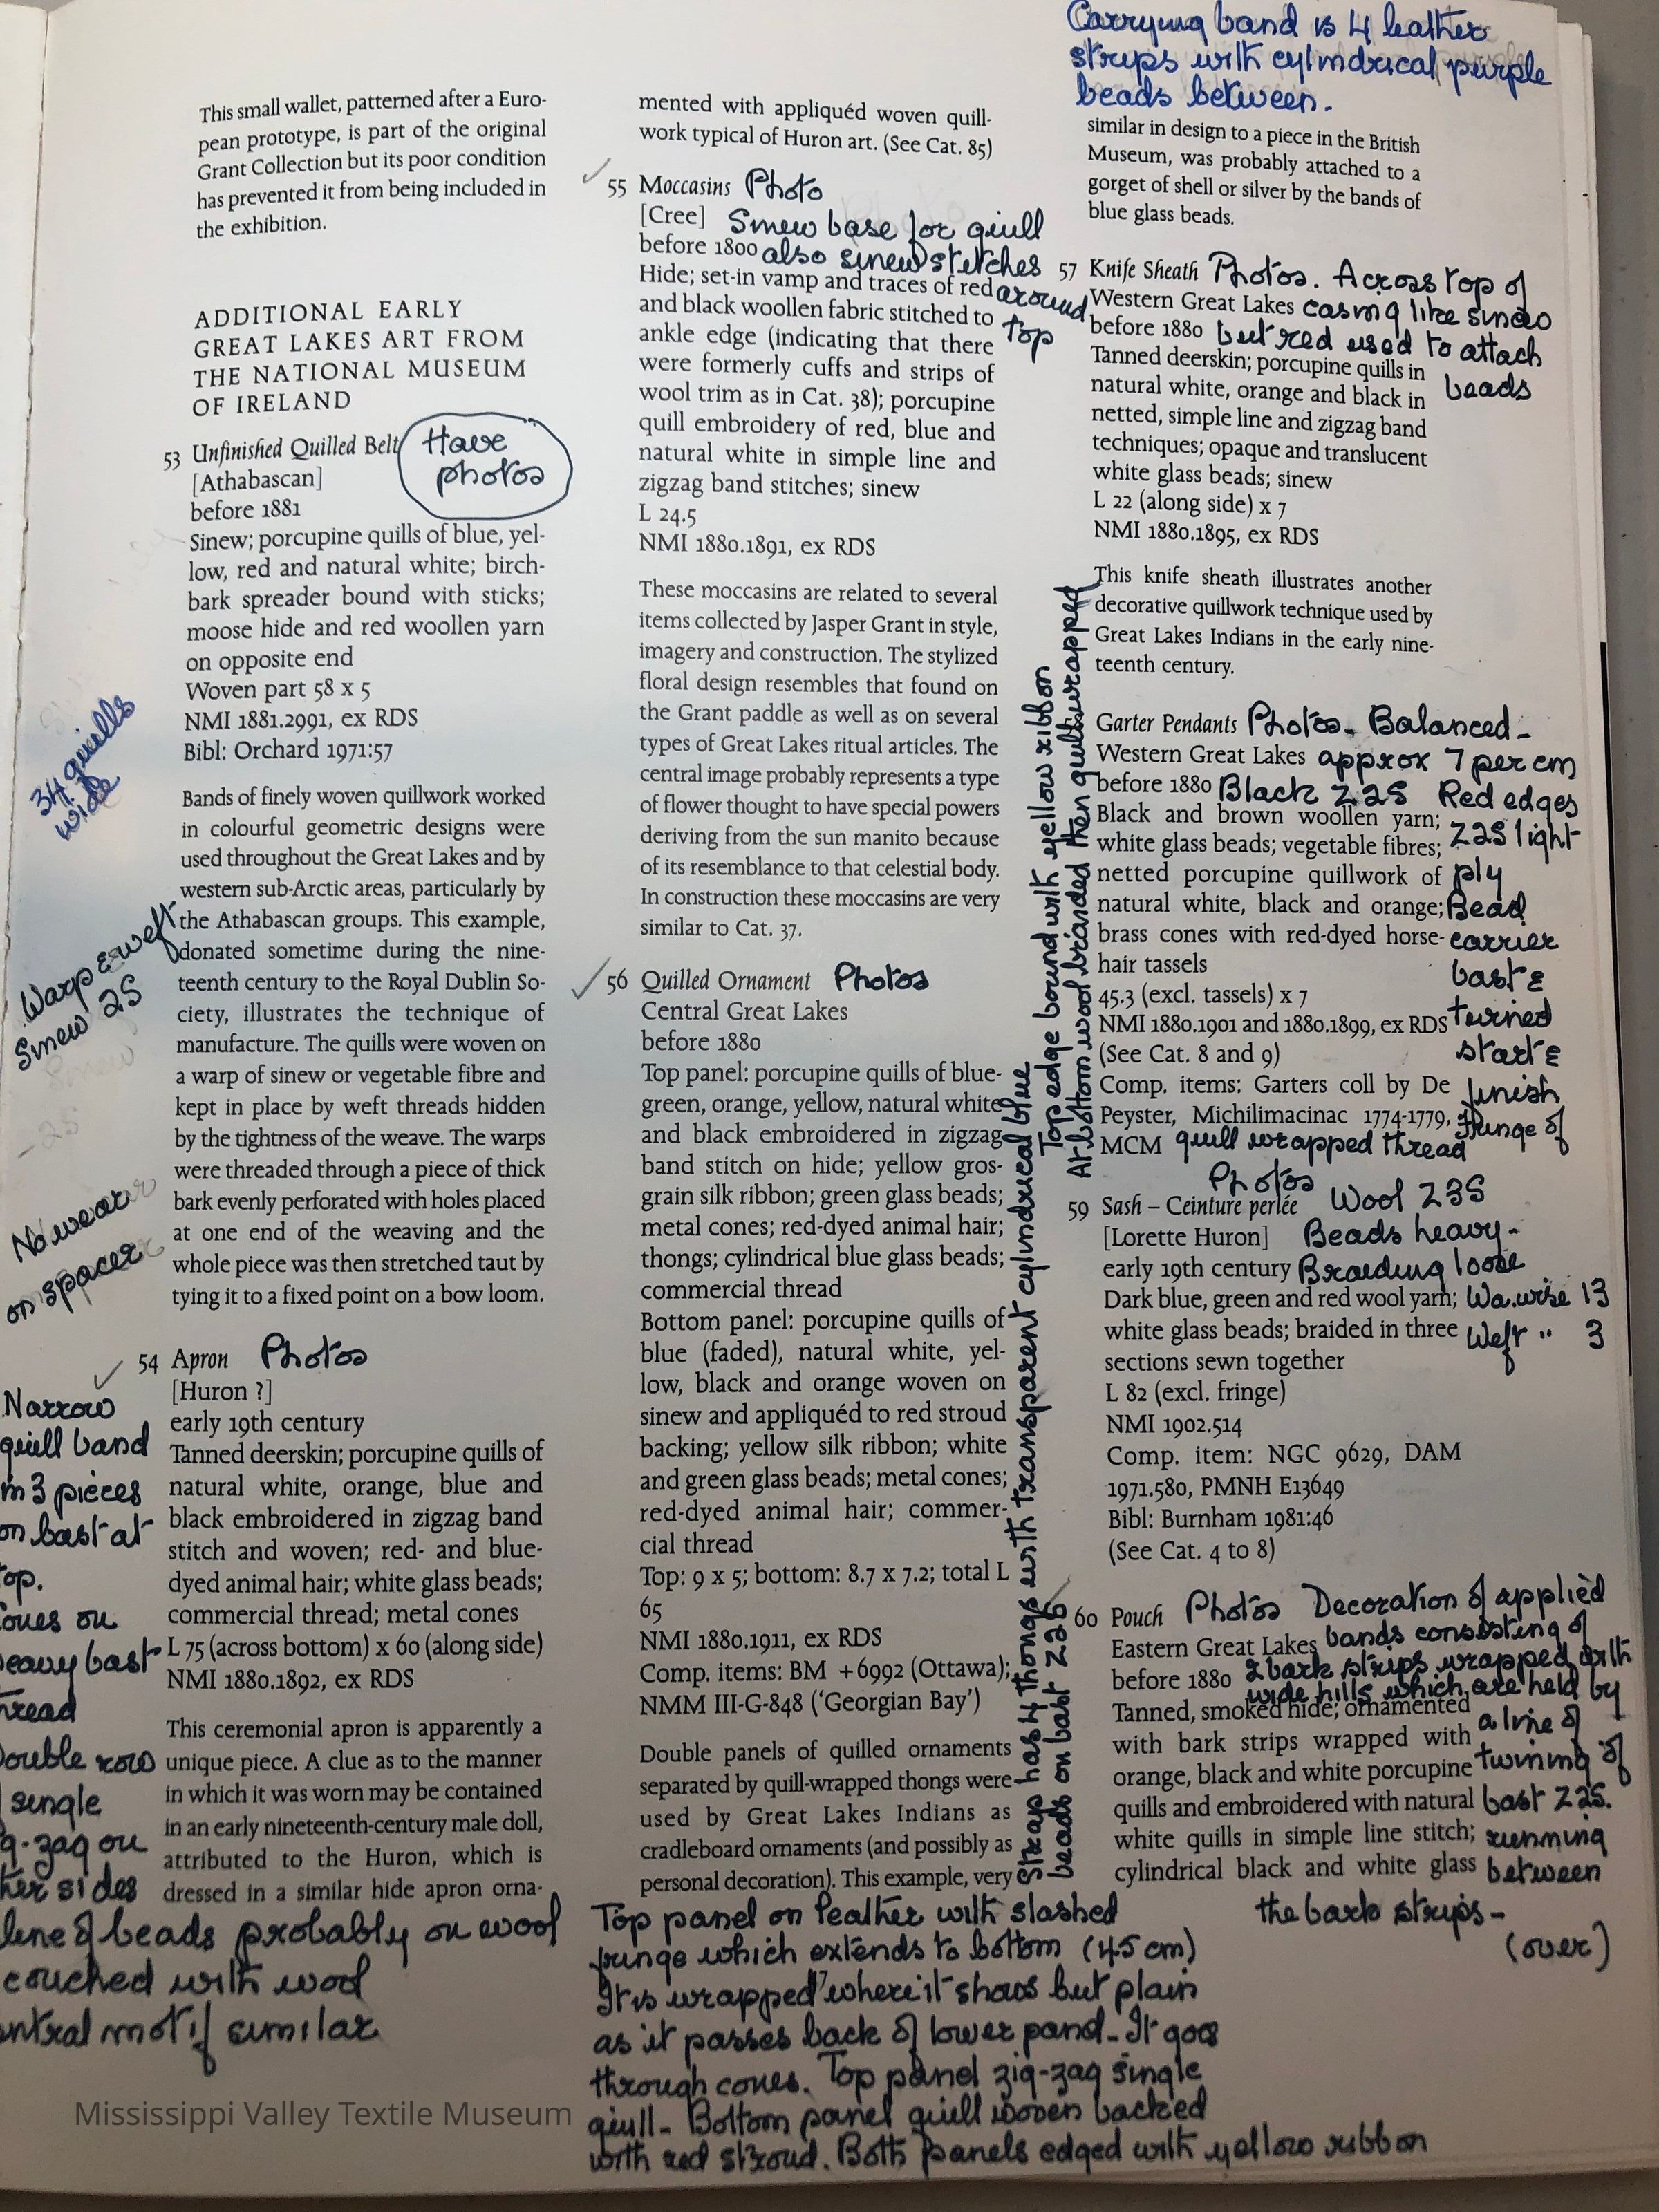 This small wallet, patterned after a Euro-
pean prototype, is part of the original
Grant Collection but its poor condition
has prevented it from being included in
the exhibition.
ADDITIONAL EARLY
GREAT LAKES ART FROM
THE NATIONAL MUSEUM
OF IRELAND
53 Unfinished Quilled Belt
Have
photos
[Athabascan]
before 1881
Sinew; porcupine quills of blue, yel-
low, red and natural white; birch-
bark spreader bound with sticks;
moose hide and red woollen yarn
on opposite end
Woven part 58 x 5
NMI 1881.2991, ex RDS
Bibl: Orchard 1971:57
34 quills
wide
Bands of finely woven quillwork worked
in colourful geometric designs were
used throughout the Great Lakes and by
western sub-Arctic areas, particularly by
the Athabascan groups. This example,
donated sometime during the nine-
teenth century to the Royal Dublin So-
ciety, illustrates the technique of
manufacture. The quills were woven on
a warp of sinew or vegetable fibre and
kept in place by weft threads hidden
by the tightness of the weave. The warps
were threaded through a piece of thick
bark evenly perforated with holes placed
at one end of the weaving and the
whole piece was then stretched taut by
tying it to a fixed point on a bow loom.
Warp & weft
Sinew 2S
No wear
on spacer
54 Apron Photos
[Huron ?]
early 19th century
Tanned deerskin; porcupine quills of
natural white, orange, blue and
black embroidered in zigzag band
stitch and woven; red- and blue-
dyed animal hair; white glass beads;
commercial thread; metal cones
L 75 (across bottom) x 60 (along side)
NMI 1880.1892, ex RDS
This ceremonial apron is apparently a
unique piece. A clue as to the manner
in which it was worn may be contained
in an early nineteenth-century male doll,
attributed to the Huron, which is
dressed in a similar hide apron orna-
Narrow
quill band
in 3 pieces
on bast at
top.
Cones on
heavy bast
thread
Double row
single
zig-zag on
other sides
line of beads probably on wool
couched with wool
central motif similar
mented with appliquéd woven quill-
work typical of Huron art. (See Cat. 85)
55 Moccasins Photo
[Cree] Sinew base for quill
before 1800 also sinew stitches
around
top
Hide; set-in vamp and traces of red
and black woollen fabric stitched to
ankle edge (indicating that there
were formerly cuffs and strips of
wool trim as in Cat. 38); porcupine
quill embroidery of red, blue and
natural white in simple line and
zigzag band stitches; sinew
L 24.5
NMI 1880.1891, ex RDS
These moccasins are related to several
items collected by Jasper Grant in style,
imagery and construction. The stylized
floral design resembles that found on
the Grant paddle as well as on several
types of Great Lakes ritual articles. The
central image probably represents a type
of flower thought to have special powers
deriving from the sun manito because
of its resemblance to that celestial body.
In construction these moccasins are very
similar to Cat. 37.
56 Quilled Ornament Photos
Central Great Lakes
before 1880
Top panel: porcupine quills of blue-
green, orange, yellow, natural white
and black embroidered in zigzag
band stitch on hide; yellow gros-
grain silk ribbon; green glass beads;
metal cones; red-dyed animal hair;
thongs; cylindrical blue glass beads;
commercial thread
Bottom panel: porcupine quills of
blue (faded), natural white, yel-
low, black and orange woven on
sinew and appliquéd to red stroud
backing; yellow silk ribbon; white
and green glass beads; metal cones;
red-dyed animal hair; commer-
cial thread
Top: 9 x 5; bottom: 8.7 x 7.2; total L
65
NMI 1880.1911, ex RDS
Comp. items: BM +6992 (Ottawa);
NMM III-G-848 ('Georgian Bay')
Double panels of quilled ornaments
separated by quill-wrapped thongs were
used by Great Lakes Indians as
cradleboard ornaments (and possibly as
personal decoration). This example, very
Strap has 4 thongs with transparent cylindrical blue
beads on bast Z2S
Top edge bound with yellow ribbon
At bottom wool braided then quill wrapped
Top panel on leather with slashed
fringe which extends to bottom (45 cm)
It is wrapped where it shows but plain
as it passes back of lower panel - It goes
through cones. Top panel zig-zag single
quill - Bottom panel quill woven backed
with red stroud. Both panels edged with yellow ribbon
Carrying band is 4 leather
strips with cylindrical purple
beads between.
similar in design to a piece in the British
Museum, was probably attached to a
gorget of shell or silver by the bands of
blue glass beads.
57 Knife Sheath Photos. Across top of
Western Great Lakes casing like sinew
before 1880 but red used to attach
beads
Tanned deerskin; porcupine quills in
natural white, orange and black in
netted, simple line and zigzag band
techniques; opaque and translucent
white glass beads; sinew
L 22 (along side) x 7
NMI 1880.1895, ex RDS
This knife sheath illustrates another
decorative quillwork technique used by
Great Lakes Indians in the early nine-
teenth century.
Garter Pendants Photos - Balanced -
Western Great Lakes approx 7 per cm
before 1880 Black Z2S Red edges
Z2S light
ply
Bead
carrier
bast &
twined
start &
finish
Fringe of
quill wrapped thread
Black and brown woollen yarn;
white glass beads; vegetable fibres;
netted porcupine quillwork of
natural white, black and orange;
brass cones with red-dyed horse-
hair tassels
45.3 (excl. tassels) x 7
NMI 1880.1901 and 1880.1899, ex RDS
(See Cat. 8 and 9)
Comp. items: Garters coll by De
Peyster, Michilimacinac 1774-1779,
MCM
Photos
59 Sash – Ceinture perlée Wool Z3S
[Lorette Huron] Beads heavy -
early 19th century Braiding loose
Dark blue, green and red wool yarn; Wa. wise 13
white glass beads; braided in three Weft " 3
sections sewn together
L 82 (excl. fringe)
NMI 1902.514
Comp. item: NGC 9629, DAM
1971.580, PMNH E13649
Bibl: Burnham 1981:46
(See Cat. 4 to 8)
60 Pouch Photos Decoration of applied
Eastern Great Lakes bands consisting of
before 1880 2 bark strips wrapped with
wide quills which are held by
a line of
twining of
bast Z2S.
running
between
the bark strips -
(over)
Tanned, smoked hide; ornamented
with bark strips wrapped with
orange, black and white porcupine
quills and embroidered with natural
white quills in simple line stitch;
cylindrical black and white glass
Mississippi Valley Textile Museum